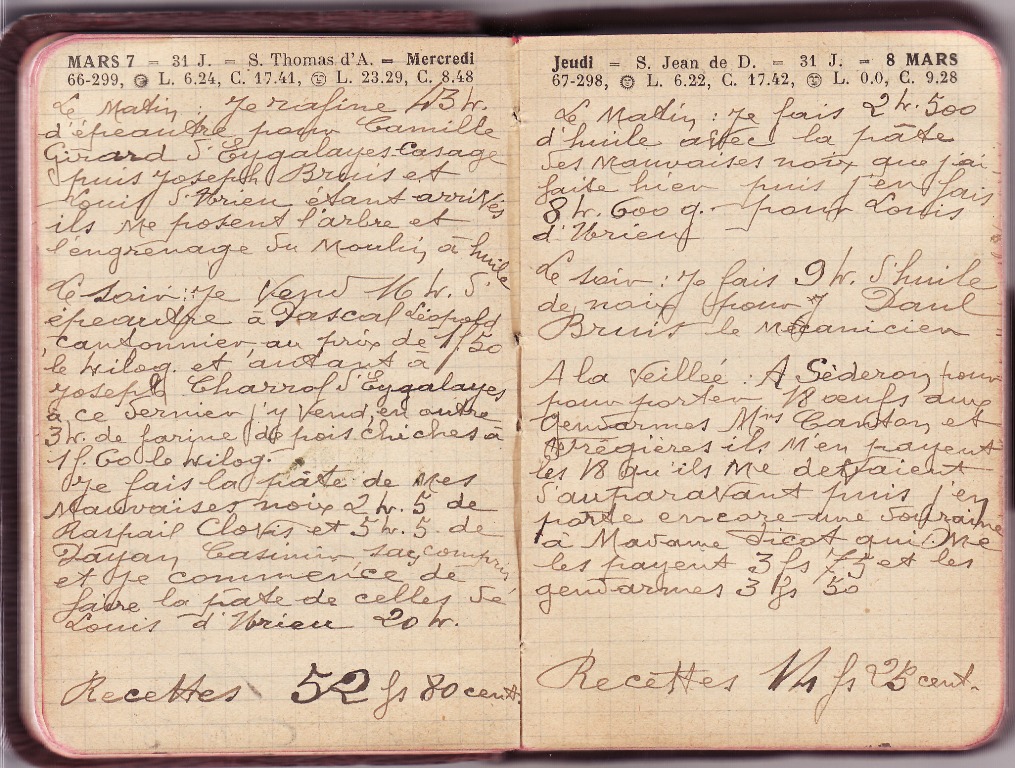 MARS 7 = 31 J. – S. Thomas d'A. = Mercredi
66-299, L. 6.24, C. 17.41, L. 23.29, C. 8.48
Le Matin : Je rafine 43 k.
d'épeautre pour Camille
Girard d'Eygalayes Casage
puis Joseph Bruis et
Louis d'Ybrieu étant arrivés
ils me posent l'arbre et
l'engrenage du Moulin à huile
Le soir : Je vend 16 k. d'
épeautre à Pascal Léopold
cantonnier au prix de 1f.50
le kilog. et autant à
Joseph Charrol d'Eygalayes
à ce dernier j'y vend en outre
3 k. de farine de pois chiches à
1f. 60 le kilog.
Je fais la pâte de mes
Mauvaises noix 2 k. 5 de
Raspail Clovis et 5 k. 5 de
Dayan Casimir sac compris
et je commence de
faire la pâte de celles de
Louis d'Ybrieu 20 k.
Recettes 52 fs 80 cent.
Jeudi = S. Jean de D. – 31 J. = 8 MARS
67-298, L. 6.22, C. 17.42, L. 0.0, C. 9.28
Le Matin : Je fais 2 k. 500
d'huile avec la pâte
des Mauvaises noix que j'ai
faite hier puis j'en fais
8 k. 600 g. pour Louis
d'Ybrieu
Le soir : Je fais 9 k. d'huile
de noix pour Paul
Bruis le mécanicien
A la veillée : A Séderon pour
pour porter 18 œufs aux
Gendarmes Mrs Canton et
ils m'en payent
les 18 qu'ils me devaient
d'auparavant puis j'en
porte encore une douzaine
à Madame Picot qui me
les payent 3 fs 75 et les
gendarmes 3 fs 50
Recettes 14 fs 25 cent.